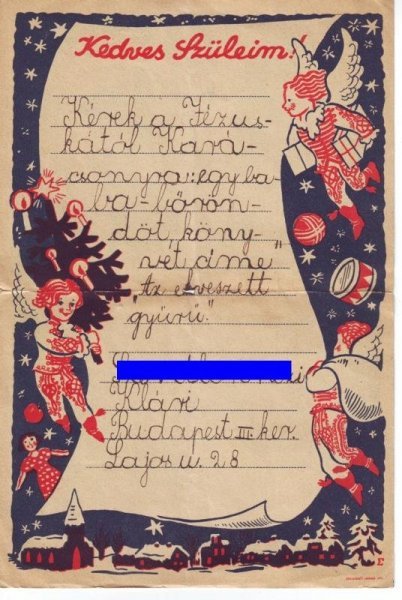 Kedves Szüleim!
Kérek a Jézus-
kától Kará-
csonyra: egy ba-
ba-bőrön-
döt, köny-
vet, címe"
"Az elveszett
gyürü".
Klári
Budapest III ker.
Lajos u. 28